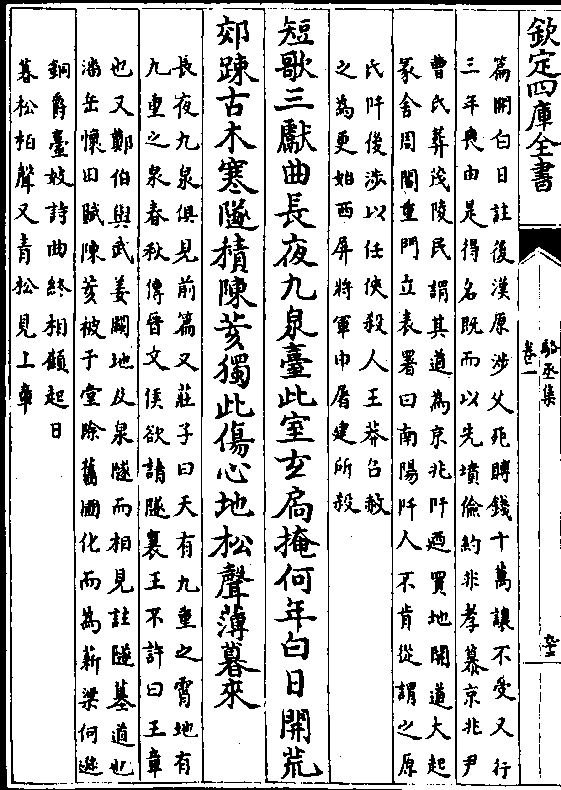 欽定四庫全書
駱丞集
卷一
篇開白日註後漢原涉父死賻錢十萬讓不受又行
三年喪由是得名既而以先墳儉約非孝慕京兆尹
曹氏葬茂陵民謂其道為京兆阡廼買地開道大起
冡舍周閣重門立表署曰南陽阡人不肯從謂之原
氏阡後涉以任俠殺人王莽召赦
之為更始西屏將軍申屠建所殺
短歌三獻曲長夜九泉臺此室玄扃掩何年白日開荒
郊踈古木寒隧積陳荄獨此傷心地松聲薄暮來
長夜九泉俱見前篇又莊子曰天有九重之霄地有
九重之泉春秋傳晉文侯欲請隧襄王不許曰王章
也又鄭伯與武姜闕地及泉隧而相見註隧墓道也
潘岳懷田賦陳荄被于堂除舊圃化而為薪梁何遜
銅爵臺妓詩曲終相顧起日
暮松柏聲又青松見上章